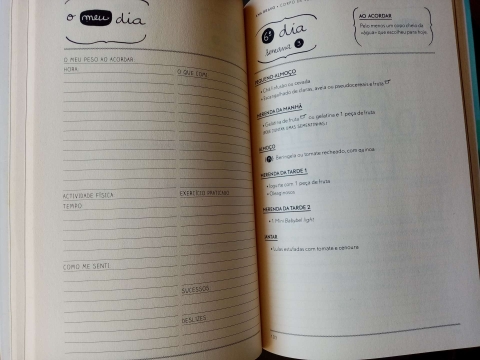 o meu dia
O MEU PESO AO ACORDAR:
HORA:
O QUE COMI
ACTIVIDADE FÍSICA
TEMPO:
EXERCÍCIO PRATICADO
COMO ME SENTI
SUCESSOS
DESLIZES
6º dia
Semana 1
AO ACORDAR
Pelo menos um copo cheio da
«água» que escolheu para hoje
PEQUENO ALMOÇO
• Chá/infusão ou cevada
de claras, aveia ou pseudocereais e fruta
MERENDA DA MANHÃ
• Gelatina de fruta ou gelatina e 1 peça de fruta
ALMOÇO
Beringela ou tomate recheado, com quinoa
MERENDA DA TARDE 1
• Iogurte com 1 peça de fruta
• Oleaginosas
MERENDA DA TARDE 2
• 1 Mini Babybel light
JANTAR
• Lulas estufadas com tomate e cenoura